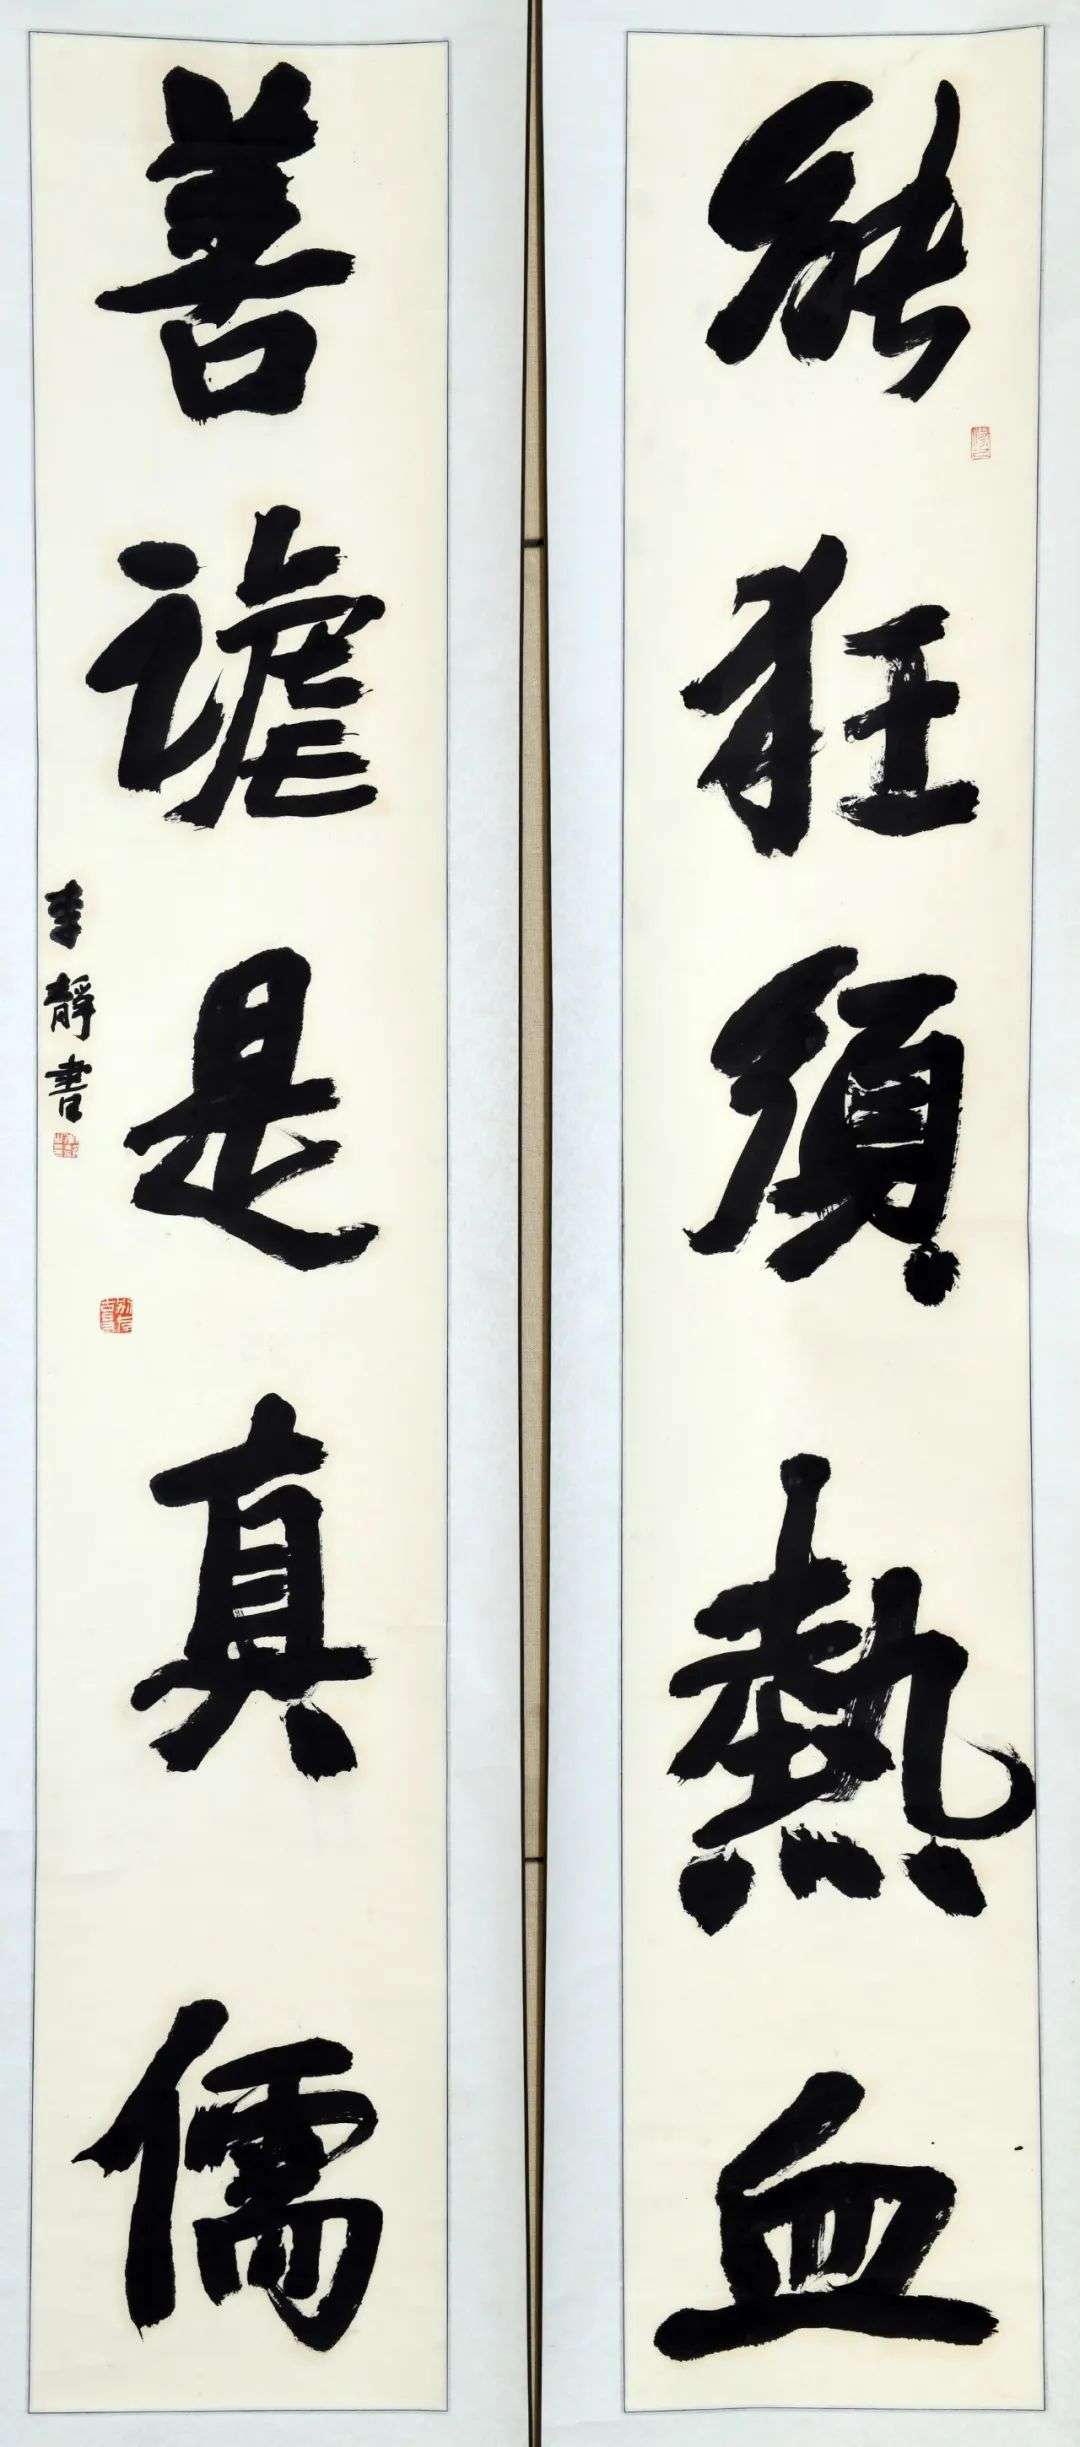 能狂須熱血
善謔是真儒
李靜書